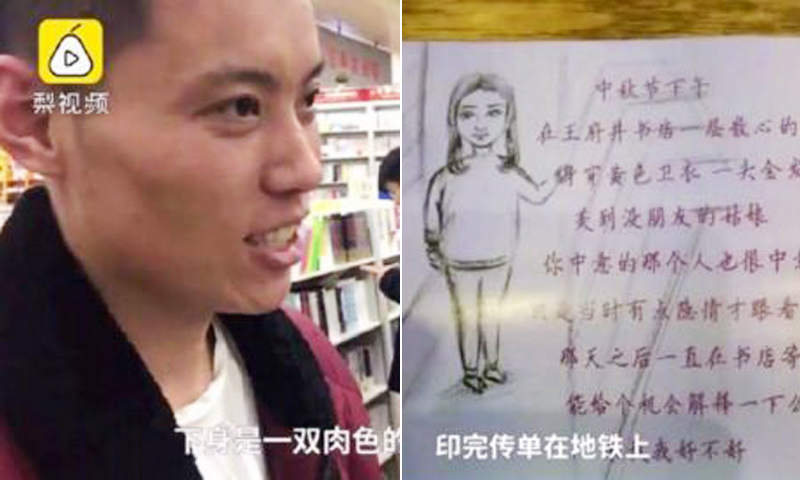 梨视频
下身是一双肉色的
中秋节下午
在王府井书店一层散心的
穿黄色卫衣 一头金
美到没朋友的姑娘
你中意的那个人也很中意
是当时有点隐情才跟着
那天之后一直在书店等
能给个机会解释一下
我好不好
印完传单在地铁上